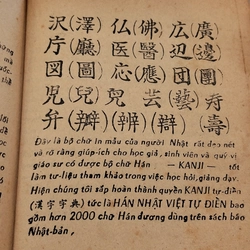 沢(澤) 仏(佛) 広(廣)
庁(廳) 医(醫) 辺(邊)
図(圖) 応(應) 団(團)
児(兒) 兒 芸(藝) 寿
弁 (辨) (辯) (壽)
Đây là bộ chữ in mẫu của người Nhật rất đẹp nét
và rõ ràng giúp-ích cho học giả, sinh viên và quý vị
giáo sư có được bộ chữ Hán — KANJI — tốt
làm tư-liệu tham khảo trong việc học hỏi, giảng dạy.
Hiện chúng tôi sắp hoàn thành quyển KANJI tự-điển
(漢字字典) tức là HÁN NHẬT VIỆT TỰ ĐIỂN bao
gồm hơn 2000 chữ Hán đương dùng trên sách báo
Nhật-bản,